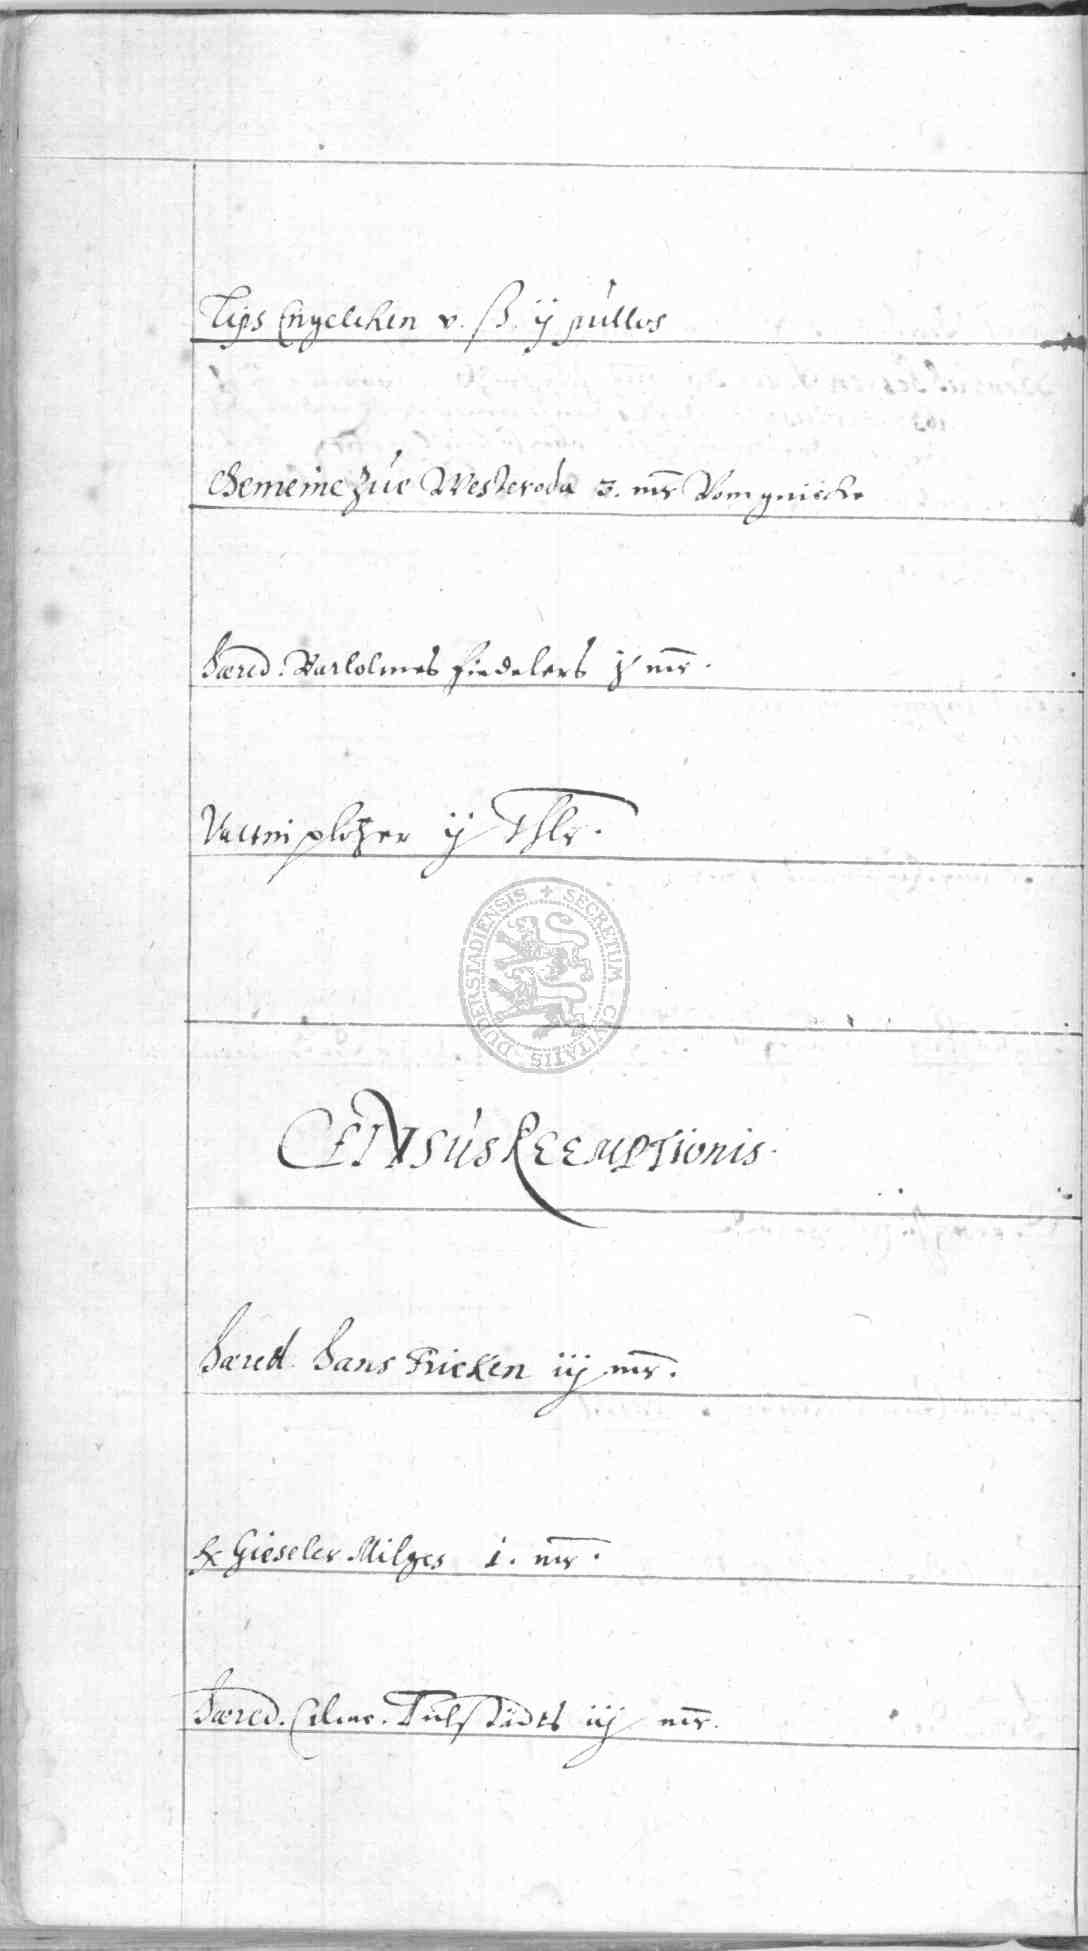 Tips Engelchen v. ß. ij pullos
Gemeine zue Westeroda 3. mr Vom gniecke
Haered. Bartolmes Fiedelers j mr.
Valtin plotzer ij Thlr.
SECRETUM CIVITATIS DUDERSTADIENSIS
CENSUS REEMPTIONIS.
Haered. Hans Fricken iij mr.
Gieseler Milges i. mr.
Haered. Tulstädts iij mr.